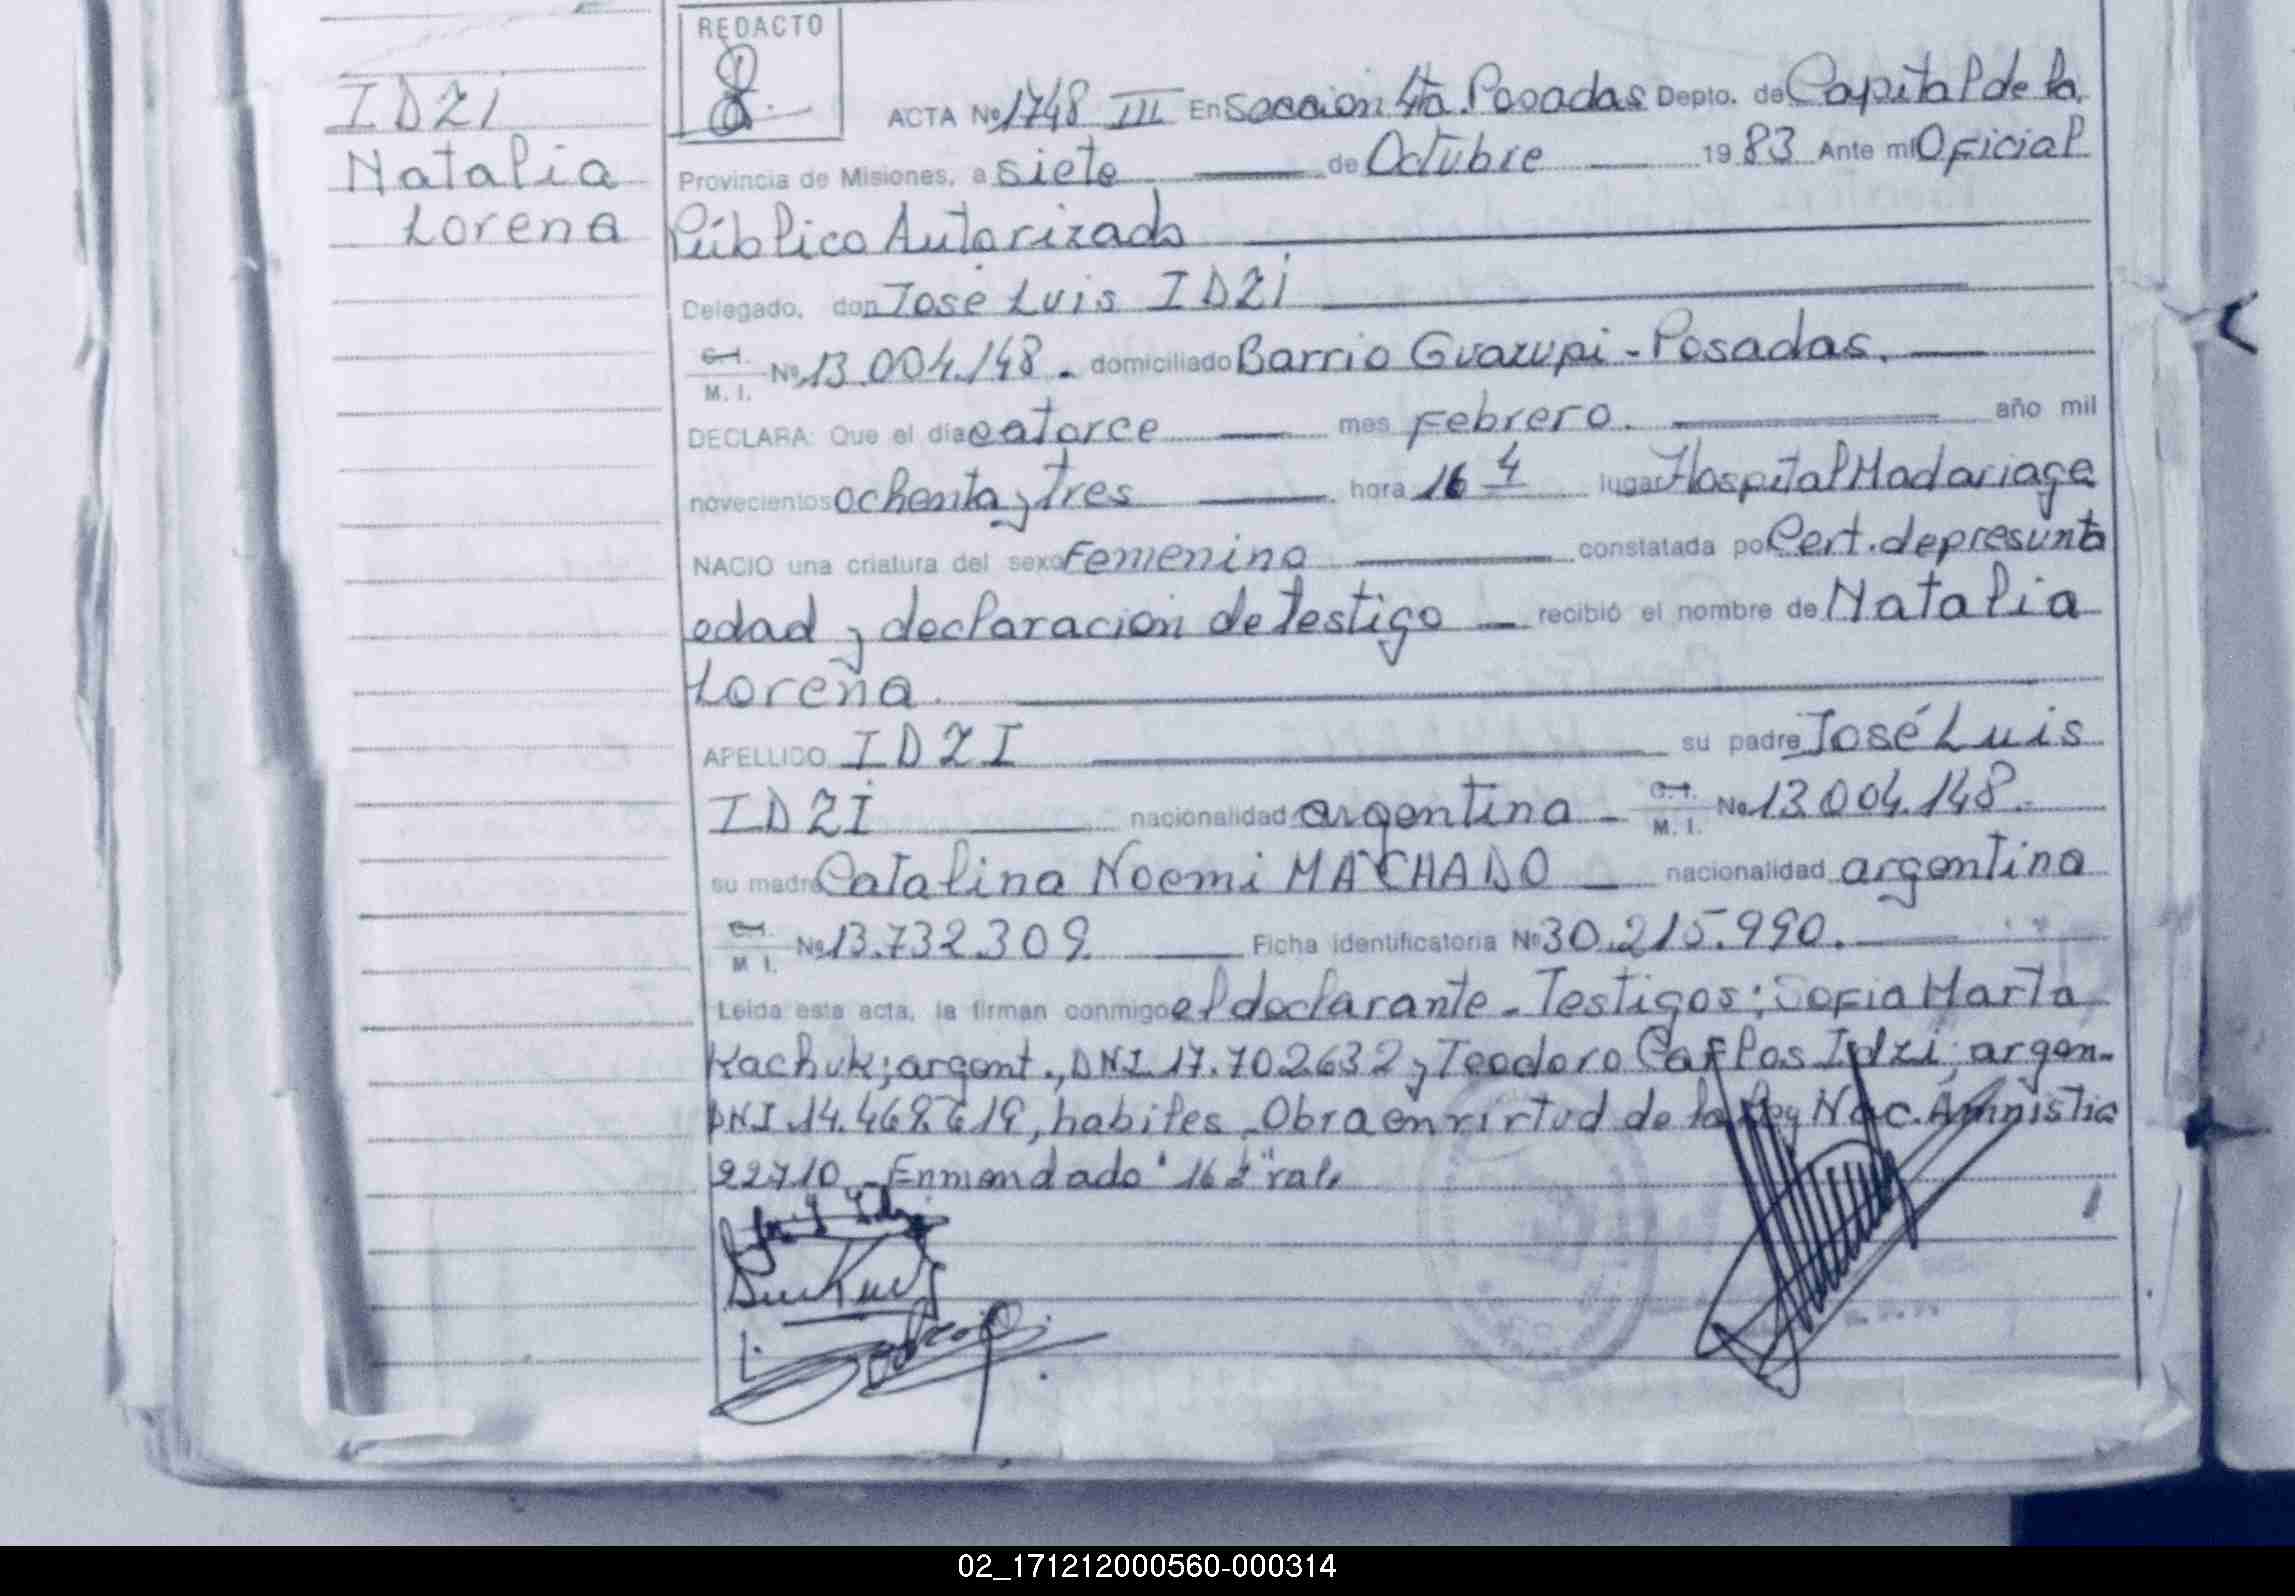 REDACTO
IDZI
Natalia
Lorena
ACTA Nº 1748 III En Sección 4ta. Posadas Depto. de Capital de la
Provincia de Misiones, a siete de Octubre 1983 Ante mí Oficial
Público Autorizado
Delegado, don José Luis IDZI
C.I.
M. I. Nº 13.004.148. domiciliado Barrio Guazupi - Posadas.
DECLARA: Que el día catorce mes Febrero. año mil
novecientos ochenta y tres hora 16 lugar Hospital Madariaga
NACIO una criatura del sexo Femenino constatada por Cert. de presunta
edad y declaración de testigo recibió el nombre de Natalia
Lorena.
APELLIDO IDZI su padre José Luis
IDZI nacionalidad argentina C.I.
M. I. Nº 13.004.148.
su madre Catalina Noemi MACHADO nacionalidad argentina
C.I.
M. I. Nº 13.732.309. Ficha identificatoria Nº 30.215.990.
Leída esta acta, la firman conmigo el declarante. Testigos: Sofia Marta
Kachuk; argent., DNI. 17.702.632 y Teodoro Carlos Idzi; argen.
DNI. habiles. Obra en virtud de la Ley Nac. Amnistia
22710. Enmendado "16
02_171212000560-000314